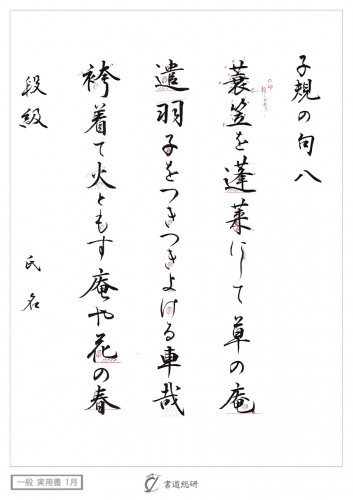 子規の句八
蓑笠を蓬莱にして草の庵
遣羽子をつきつきよける車哉
袴着て火ともす庵や花の春
段級 氏名
一般 実用書 1月
書道総研